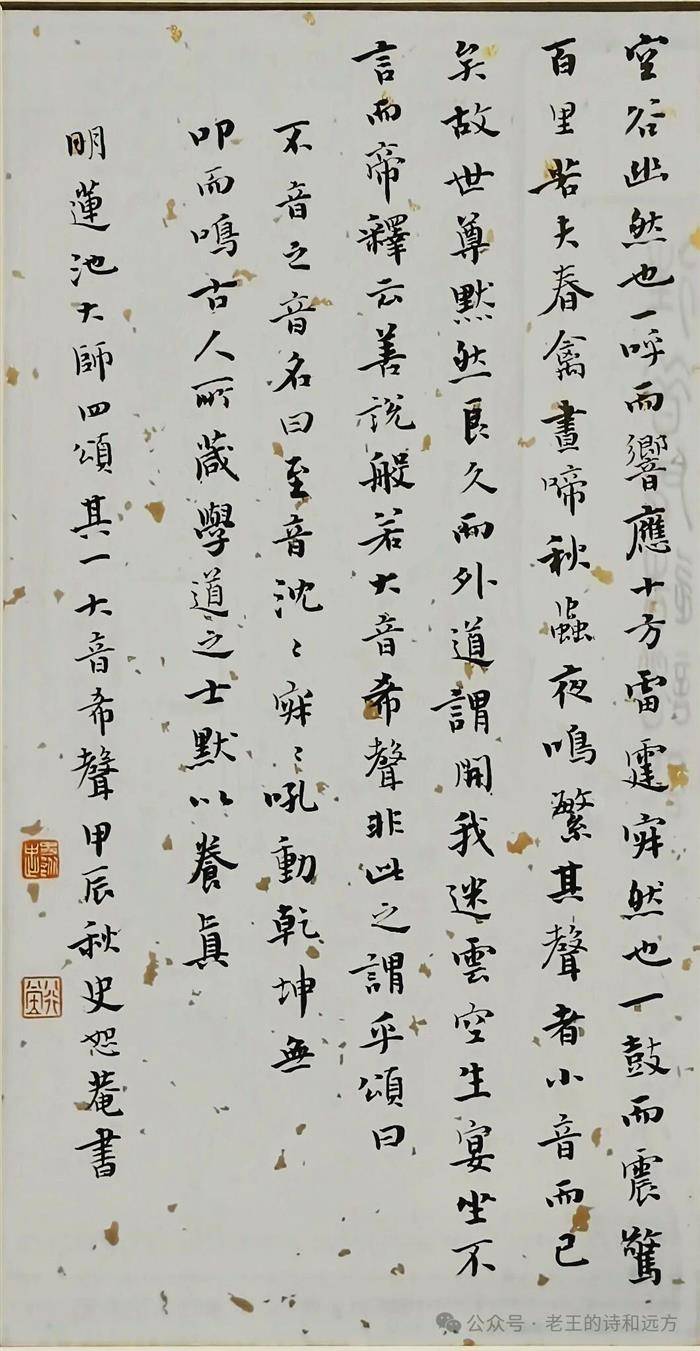 空谷幽然也一呼而響應十方雷霆寂然也一鼓而震驚
百里若夫春禽晝啼秋蟲夜鳴繁其聲者小音而已
矣故世尊默然良久而外道謂開我迷雲空生宴坐不
言而帝釋云善說般若大音希聲非此之謂乎頌曰
不音之音名曰至音沈〻寂〻吼動乾坤無
叩而鳴古人所蔵學道之士默以養真
明蓮池大師四頌其一大音希聲甲辰秋史恕菴書
公众号·老王的诗和远方